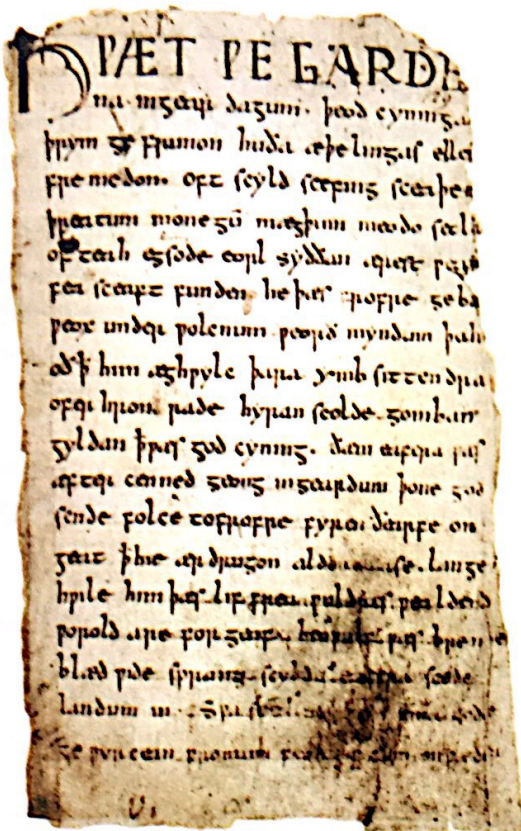 HǷÆT ǷE GARDE
na ingear dagum. þeod cyninga
þrym ge frunon huða æþelingas ellen
fremedon. oft scyld scefing sceaþen
þreatum monegū mægþum meodo setla
of teah egsode eorl syððan ærest
fea sceaft funden he þæs frofre geba
ƿeox under ƿolcnum ƿeorð myndum þah
oð þ him æghƿylc þara ymb sittendra
ofer hron rade hyran scolde gomban
gyldan þ ƿæs god cyning. ðam eafera ƿæs
æfter cenned geong ingeardum þone god
sende folce tofrofre fyren ðearfe on
geat þ hie ær drugon aldor lange
hƿile him þæs lif frea ƿuldres ƿealdend
ƿorold are for geaf ƿæs breme
blæd ƿide sprang scyldes eafera scede
landum in
ge ƿyrcean fromum